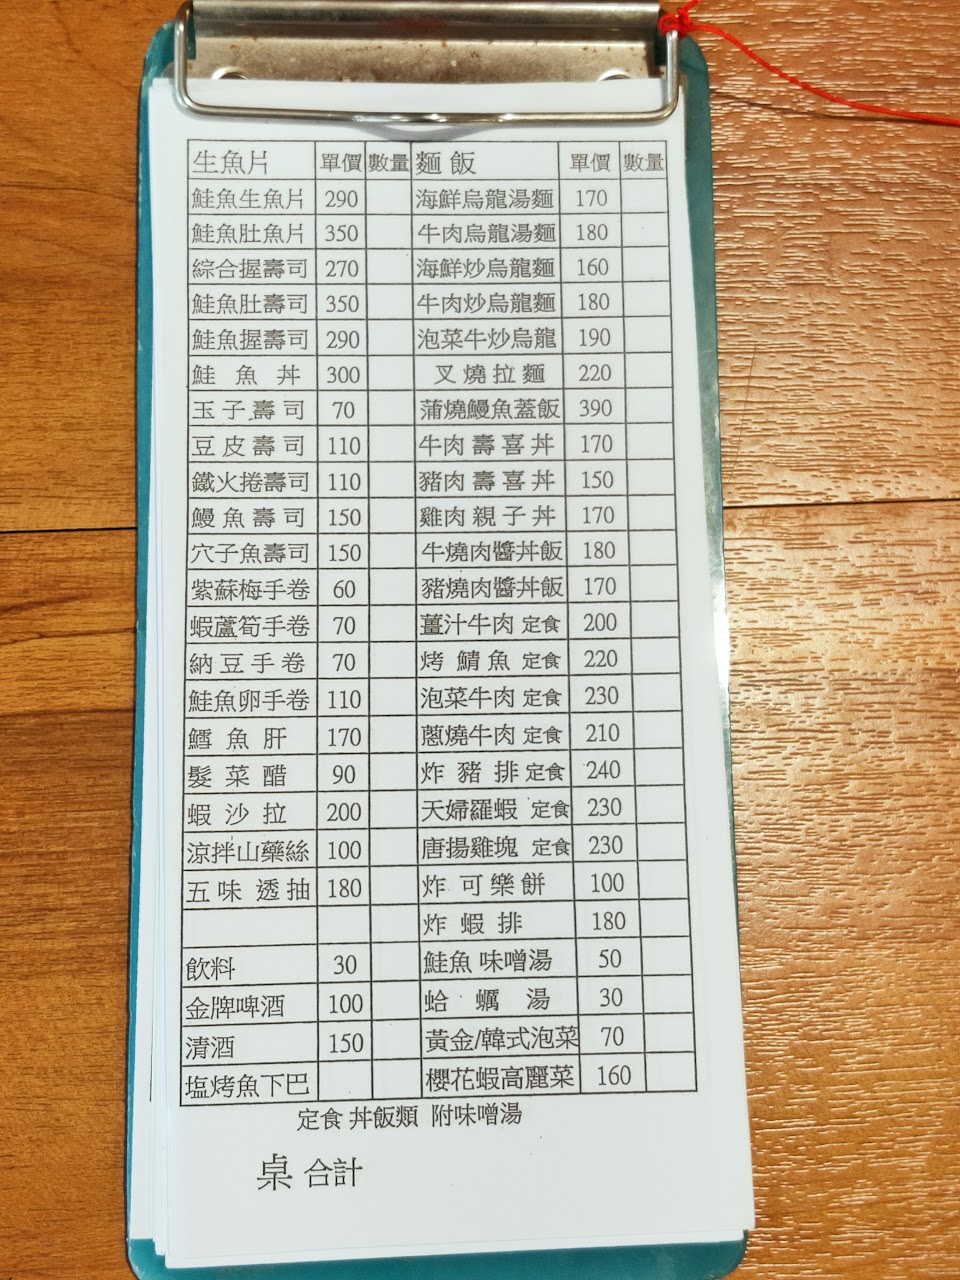 生魚片 單價 數量 麵 飯 單價 數量
鮭魚生魚片 290 海鮮烏龍湯麵 170
鮭魚肚魚片 350 牛肉烏龍湯麵 180
綜合握壽司 270 海鮮炒烏龍麵 160
鮭魚肚壽司 350 牛肉炒烏龍麵 180
鮭魚握壽司 290 泡菜牛炒烏龍 190
鮭 魚 丼 300 叉 燒 拉 麵 220
玉 子 壽 司 70 蒲燒鰻魚蓋飯 390
豆 皮 壽 司 110 牛肉 壽 喜 丼 170
鐵火捲壽司 110 豬肉 壽 喜 丼 150
鰻 魚 壽 司 150 雞肉 親 子 丼 170
穴子魚壽司 150 牛燒肉醬丼飯 180
紫蘇梅手卷 60 豬燒肉醬丼飯 170
蝦蘆筍手卷 70 薑汁牛肉 定食 200
納 豆 手 卷 70 烤 鯖 魚 定食 220
鮭魚卵手卷 110 泡菜牛肉 定食 230
鱈 魚 肝 170 蔥燒牛肉 定食 210
髮 菜 醋 90 炸 豬 排 定食 240
蝦 沙 拉 200 天婦羅蝦 定食 230
涼拌山藥絲 100 唐揚雞塊 定食 230
五 味 透 抽 180 炸 可 樂 餅 100
炸 蝦 排 180
飲料 30 鮭魚 味噌湯 50
金牌啤酒 100 蛤 蠣 湯 30
清酒 150 黃金/韓式泡菜 70
塩烤魚下巴 櫻花蝦高麗菜 160
定食 丼飯類 附味噌湯
桌 合計